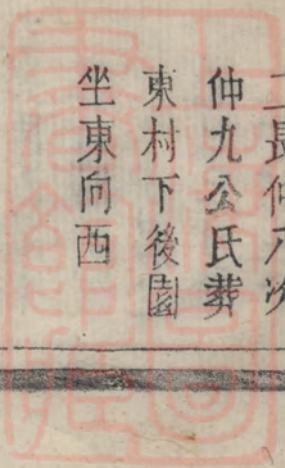 二長仲八次
仲九公氏葬
東村下後園
坐東向西